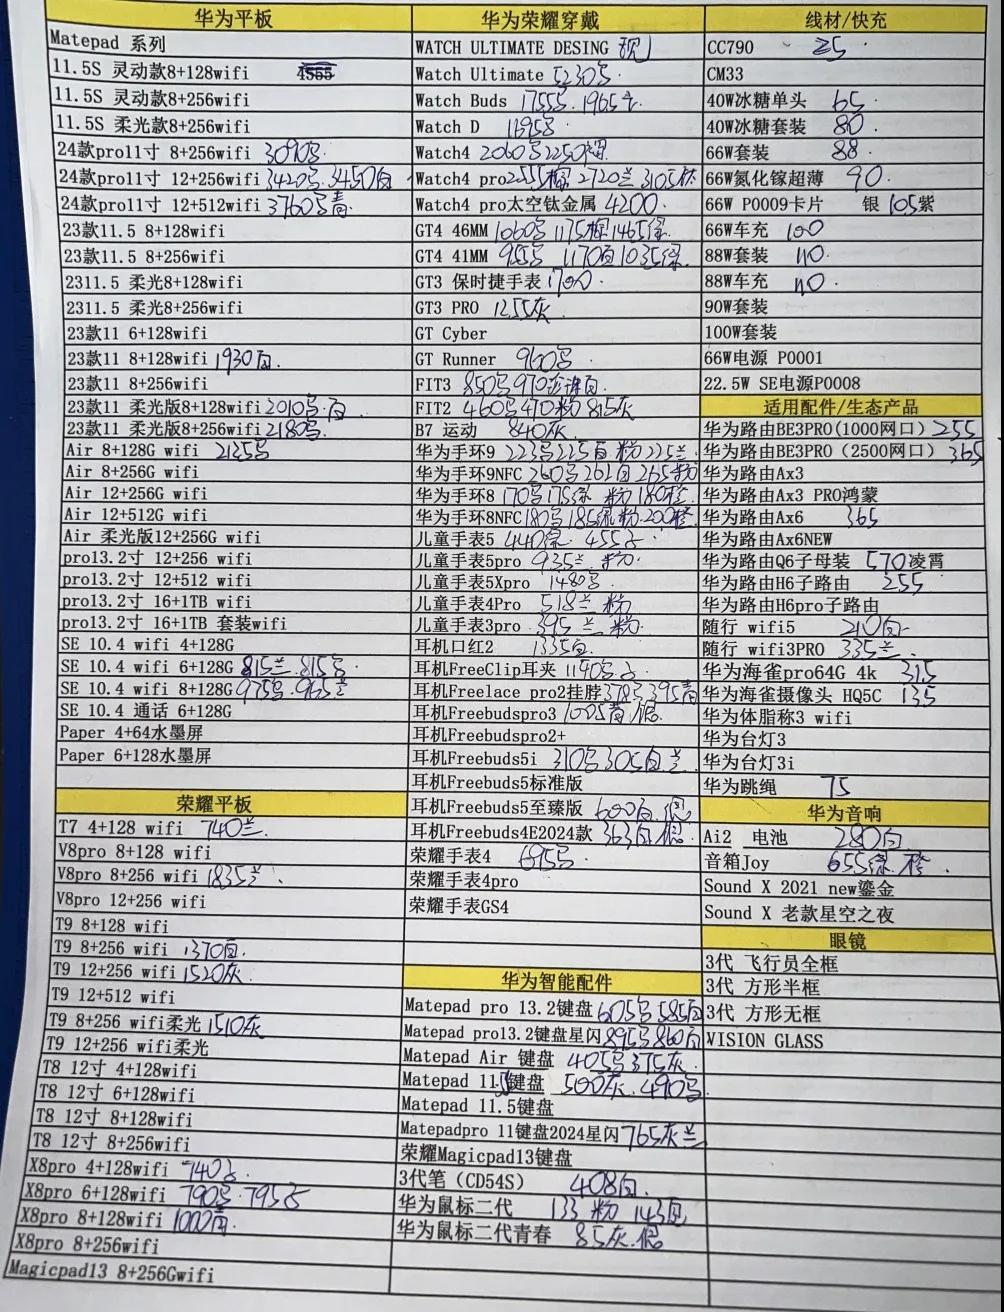 华为平板
Matepad 系列
11.5S 灵动款8+128wifi
11.5S 灵动款8+256wifi
11.5S 柔光款8+256wifi
24款pro11寸 8+256wifi 3090
24款pro11寸 12+256wifi 3420 3450白
24款pro11寸 12+512wifi 3760 青
23款11.5 8+128wifi
23款11.5 8+256wifi
2311.5 柔光8+128wifi
2311.5 柔光8+256wifi
23款11 6+128wifi
23款11 8+128wifi 1930白.
23款11 8+256wifi
23款11 柔光版8+128wifi 2010 .白
23款11 柔光版8+256wifi 2180
Air 8+128G wifi 2135
Air 8+256G wifi
Air 12+256G wifi
Air 12+512G wifi
Air 柔光版12+256G wifi
pro13.2寸 12+256 wifi
pro13.2寸 12+512 wifi
pro13.2寸 16+1TB wifi
pro13.2寸 16+1TB 套装wifi
SE 10.4 wifi 4+128G
SE 10.4 wifi 6+128G 815兰.815
SE 10.4 wifi 8+128G 975 .965兰
SE 10.4 通话 6+128G
Paper 4+64水墨屏
Paper 6+128水墨屏
荣耀平板
T7 4+128 wifi 740兰.
V8pro 8+128 wifi
V8pro 8+256 wifi 1835兰
V8pro 12+256 wifi
T9 8+128 wifi
T9 8+256 wifi 1370白.
T9 12+256 wifi 1520灰.
T9 12+512 wifi
T9 8+256 wifi柔光 1510灰
T9 12+256 wifi柔光
T8 12寸 4+128wifi
T8 12寸 6+128wifi
T8 12寸 8+128wifi
T8 12寸 8+256wifi
X8pro 4+128wifi 740
X8pro 6+128wifi 790 .795
X8pro 8+128wifi 1000青.
X8pro 8+256wifi
Magicpad13 8+256Gwifi
华为荣耀穿戴
WATCH ULTIMATE DESING
Watch Ultimate 5230
Watch Buds 1755 .1965
Watch D 1695
Watch4 2060 2250棕
Watch4 pro 2555棕 2720兰 3105钛
Watch4 pro太空钛金属 4200.
GT4 46MM 1060 1175棕 1465绿.
GT4 41MM 955 1170白 1035绿.
GT3 保时捷手表 1700.
GT3 PRO 1255灰
GT Cyber
GT Runner 960
FIT3 850 970
FIT2 460 470粉 815灰
B7 运动 840灰.
华为手环9 223 225白 粉 225兰
华为手环9NFC 260 262白 265粉
华为手环8 170 175绿 粉 180橙.
华为手环8NFC 180 185 粉.200橙
儿童手表5 440绿. 455
儿童手表5pro 935兰 粉.
儿童手表5Xpro 1480
儿童手表4Pro 518兰 粉
儿童手表3pro 395兰 粉.
耳机口红2 1335白.
耳机FreeClip耳夹 1140
耳机Freelace pro2挂脖 378 395青
耳机Freebudspro3 1005青/银.
耳机Freebudspro2+
耳机Freebuds5i 310 305白 兰
耳机Freebuds5标准版
耳机Freebuds5至臻版 600白.银
耳机Freebuds4E2024款 363白.银.
荣耀手表4 695
荣耀手表4pro
荣耀手表GS4
华为智能配件
Matepad pro 13.2键盘 605 585白
Matepad pro13.2键盘星闪 895 860白
Matepad Air 键盘 405 375灰.
Matepad 11.键盘 500灰.490
Matepad 11.5键盘
Matepadpro 11键盘2024星闪 765灰兰
荣耀Magicpad13键盘
3代笔（CD54S） 408白.
华为鼠标二代 133 粉 143
华为鼠标二代青春 85灰.银
线材/快充
CC790 25
CM33
40W冰糖单头 65
40W冰糖套装 80.
66W套装 88.
66W氮化镓超薄 90.
66W P0009卡片 银 105紫
66W车充 100
88W套装 110.
88W车充 110.
90W套装
100W套装
66W电源 P0001
22.5W SE电源P0008
适用配件/生态产品
华为路由BE3PRO(1000网口) 255
华为路由BE3PRO（2500网口）365
华为路由Ax3
华为路由Ax3 PRO鸿蒙
华为路由Ax6 365
华为路由Ax6NEW
华为路由Q6子母装 570凌霄
华为路由H6子路由 255
华为路由H6pro子路由
随行 wifi5 210白
随行 wifi3PRO 335兰.
华为海雀pro64G 4k 315
华为海雀摄像头 HQ5C 135
华为体脂称3 wifi
华为台灯3
华为台灯3i
华为跳绳 75
华为音响
Ai2 电池 280白
音箱Joy 655绿.橙.
Sound X 2021 new鎏金
Sound X 老款星空之夜
眼镜
3代 飞行员全框
3代 方形半框
3代 方形无框
VISION GLASS